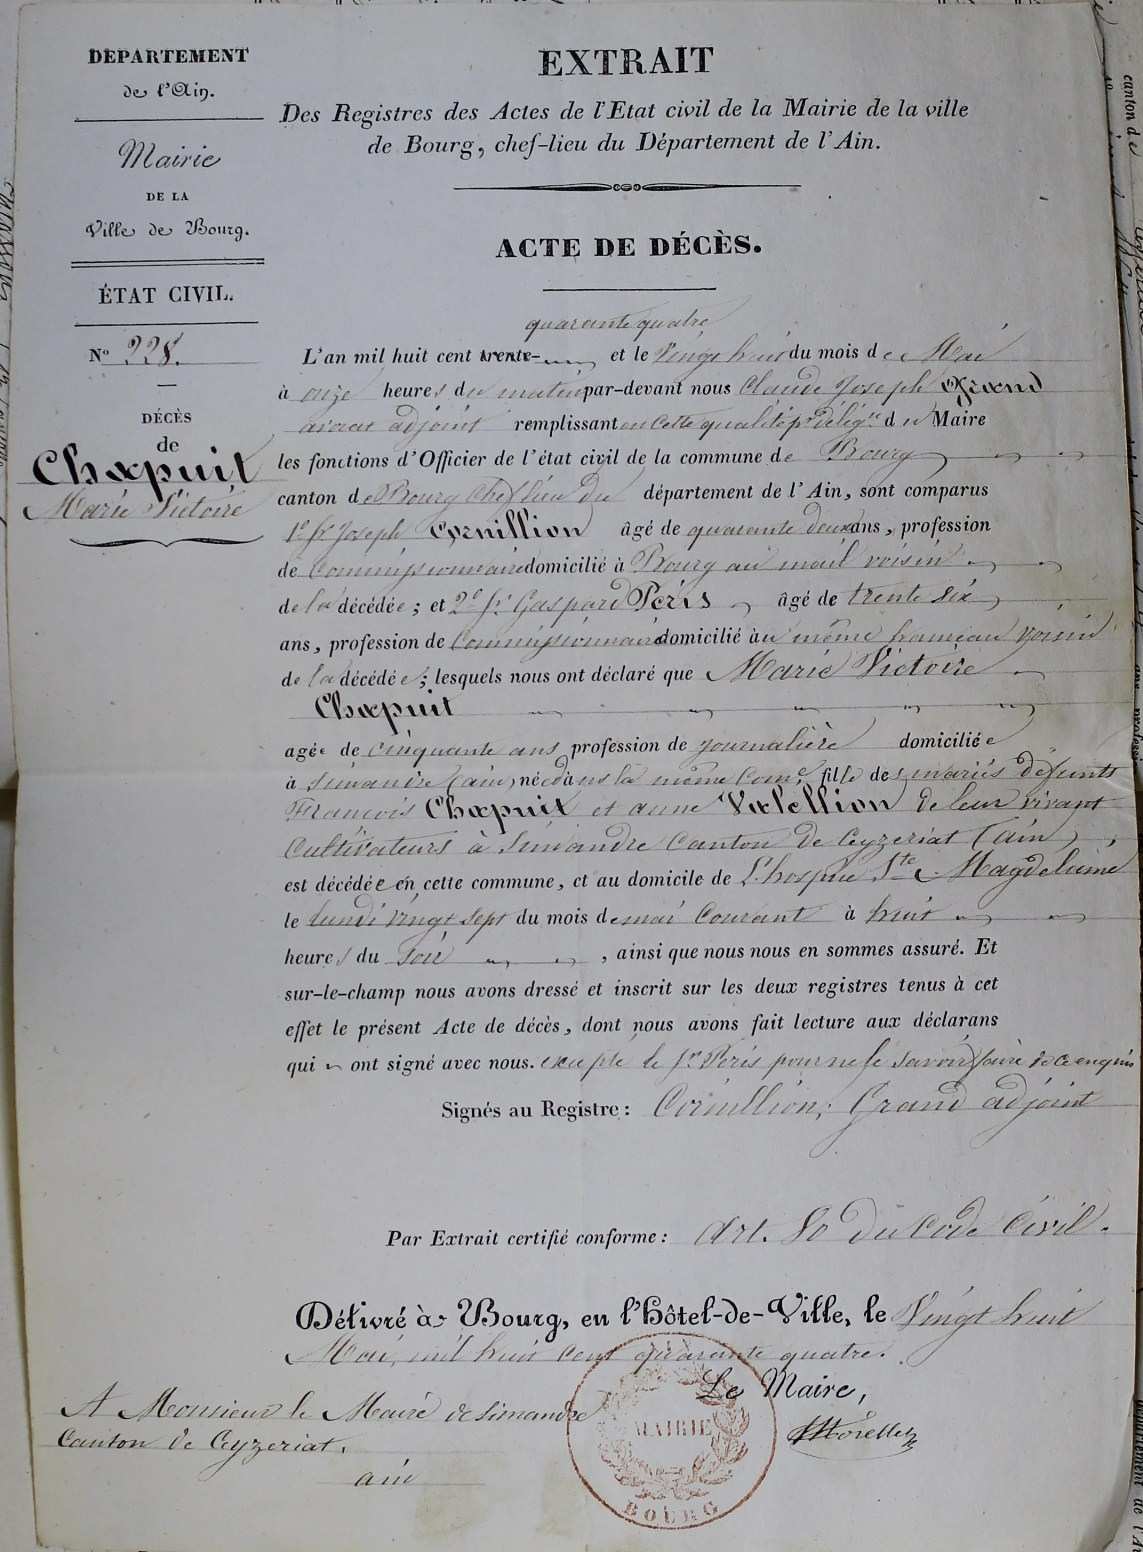 DÉPARTEMENT
de l'Ain.
Mairie
DE LA
Ville de Bourg.
ÉTAT CIVIL.
N° 228.
DÉCÈS
de
Chapuit
Marie Victoire
EXTRAIT
Des Registres des Actes de l'Etat civil de la Mairie de la ville
de Bourg, chef-lieu du Département de l'Ain.
ACTE DE DÉCÈS.
quarante quatre
L'an mil huit cent trente- et le vingt huit du mois de Mai
à onze heures du matin par-devant nous Claude Joseph Grand
avocat adjoint remplissant en cette qualité pr délég.on du Maire
les fonctions d'Officier de l'état civil de la commune de Bourg
canton de Bourg Chef lieu du département de l'Ain, sont comparus
1° Sr Joseph Cornillion âgé de quarante deux ans, profession
de Commissionnaire domicilié à Bourg au mail voisin
de la décédée; et 2° Sr Gaspard Péris âgé de trente six
ans, profession de Commissionnaire domicilié au même hameau voisin
de la décédée; lesquels nous ont déclaré que Marie Victoire
Chapuit
agée de cinquante ans profession de journalière domiciliée
à Simandre (ain) née dans la même Come fille des mariés défunts
François Chapuit et anne Valellion de leur vivant
Cultivateurs à Simandre Canton de Ceyzeriat (ain),
est décédée en cette commune, et au domicile de L'hospice Ste Magdeleine
le lundi vingt sept du mois de mai Courant à huit
heures du soir, ainsi que nous nous en sommes assuré. Et
sur-le-champ nous avons dressé et inscrit sur les deux registres tenus à cet
effet le présent Acte de décès, dont nous avons fait lecture aux déclarans
qui ont signé avec nous. excepté le Sr Péris pour ne le savoir faire de ce enquis
Signés au Registre: Cornillion; Grand adjoint
Par Extrait certifié conforme: Art. 80 du Code Civil.
Délivré à Bourg, en l'hôtel-de-Ville, le Vingt huit
Mai, mil huit cent quarante quatre.
Le Maire,
MAIRIE
BOURG
A Monsieur le Maire de Simandre
Canton de Ceyzeriat.
ain